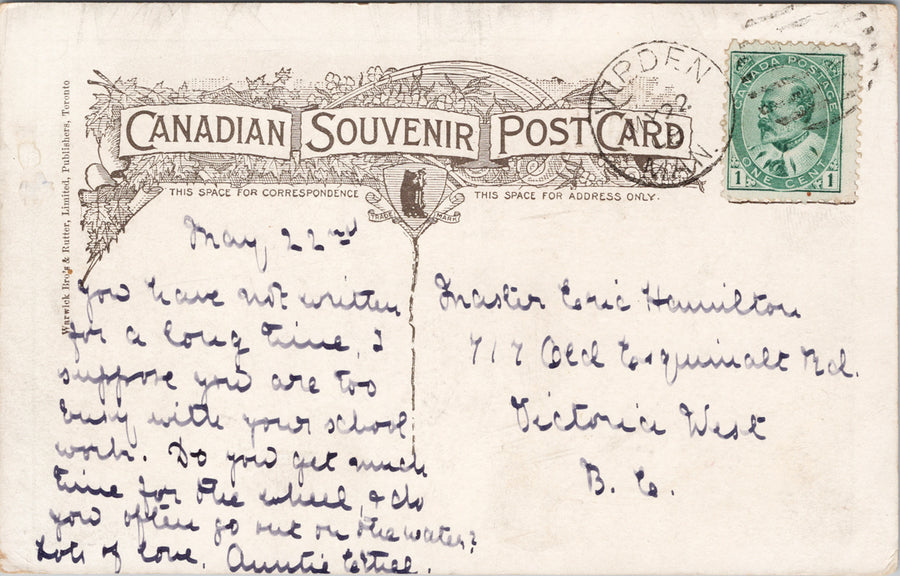 CANADIAN SOUVENIR POST CARD
THIS SPACE FOR CORRESPONDENCE
THIS SPACE FOR ADDRESS ONLY.
TRADE MARK
Warwick Bro's & Rutter, Limited, Publishers, Toronto
VIRDEN
MY 22
MAN
CANADA POSTAGE
1 ONE CENT 1
May 22nd
You have not written
for a long time, I
suppose you are too
busy with your school
work. Do you get much
time for the wheel, & do
you often go out on the water?
Lots of love, Auntie Ethel.
Master Eric Hamilton
717 Old Esquimalt Rd.
Victoria West
B. C.